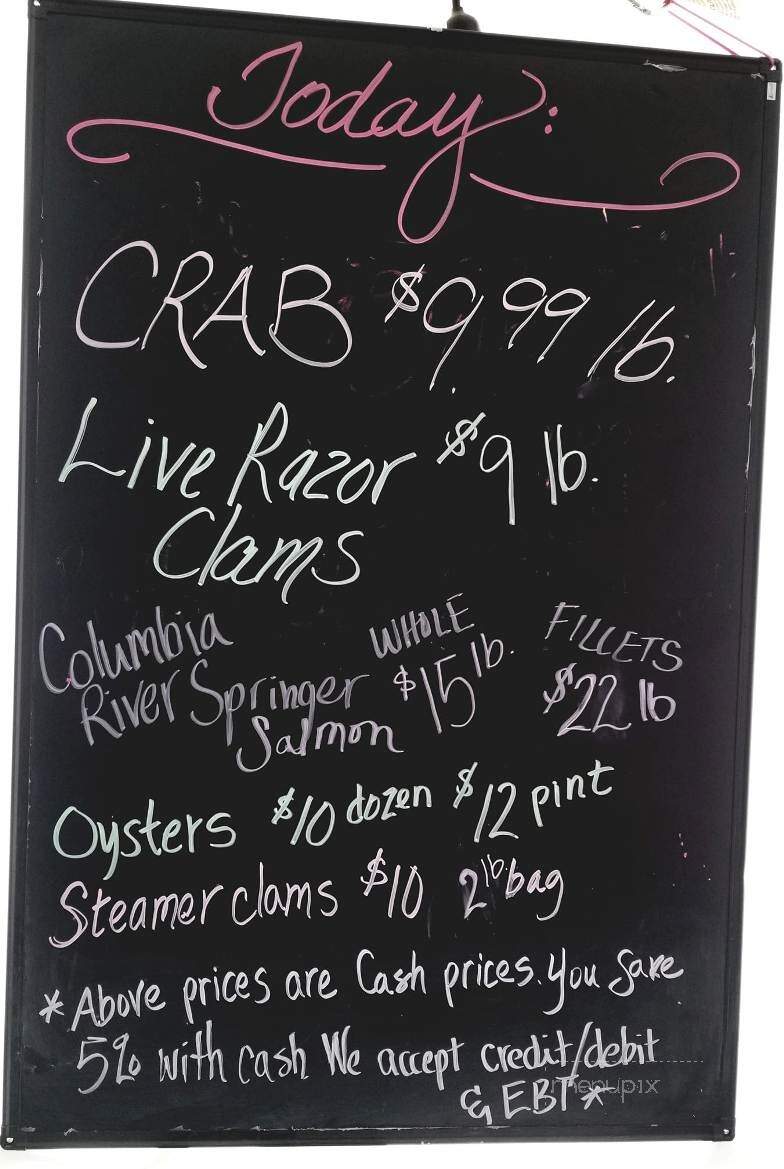 Today:
CRAB $9.99 lb.
Live Razor $9 lb.
Clams
Columbia WHOLE FILLETS
River Springer $15 lb. $22 lb
Salmon
Oysters $10 dozen $12 pint
Steamer clams $10 2 lb bag
* Above prices are Cash prices. You Save
5% with cash We accept credit/debit
& EBT *
menupix